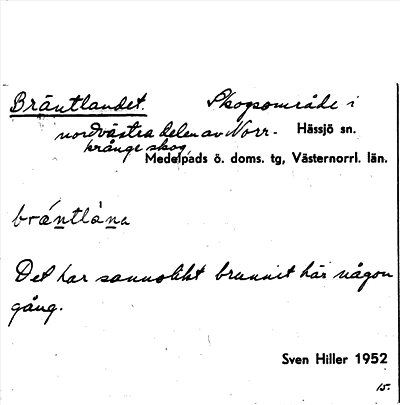 Bräntlandet. Skogsområde i
nordvästra delen av Norr- Hässjö sn.
krånge skog. Medelpads ö. doms. tg, Västernorrl. län.
brä́ntlàna
Det har sannolikt brunnit här någon
gång.
Sven Hiller 1952
15.